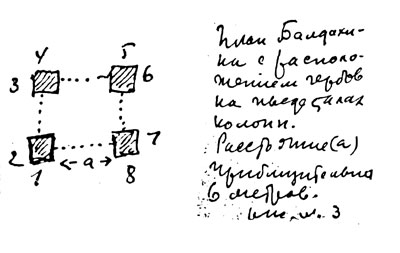 4 5
3 6
2 7
1 ←a→ 8
План Балдахи-
на с располо-
жением гербов
на пьедесталах
колонн.
Расстояние (а)
приблизительно
6 метров.
3